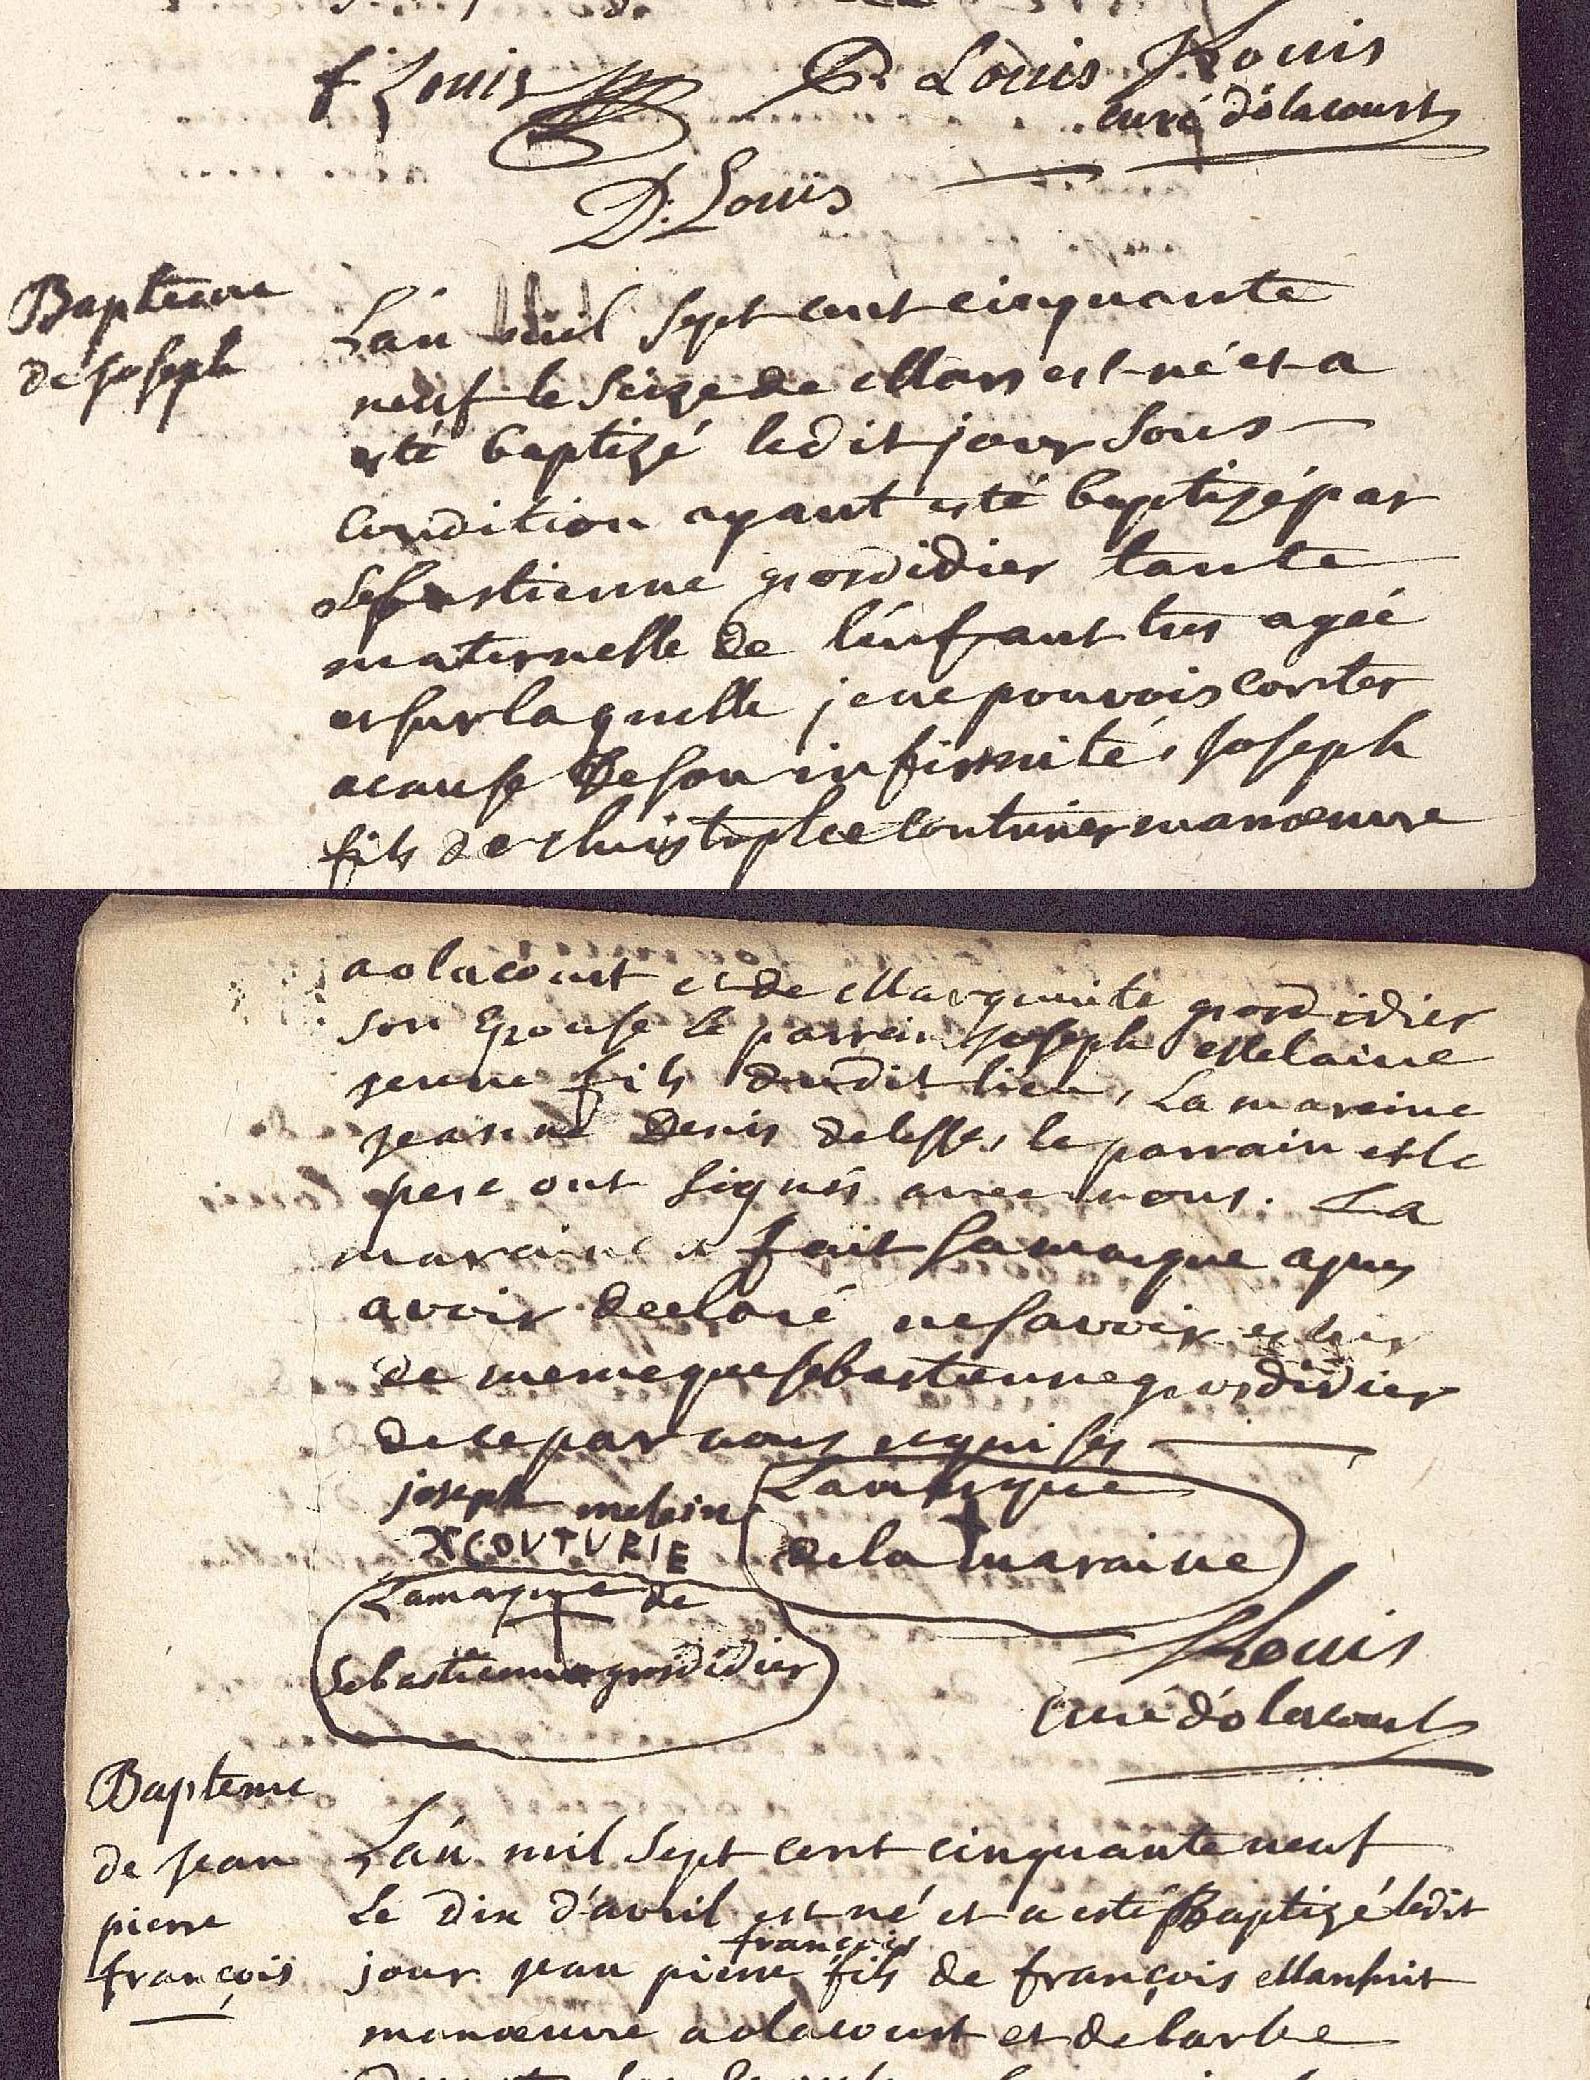 f Louis P. Louis Louis
curé d'olacourt
D. Louis
Bapteme
de joseph
L'an mil sept cent cinquante
neuf le seize de Mars est né et a
esté baptizé ledit jour sous
condition ayant esté baptizé par
Sebastienne grosdidier tante
maternelle de l'enfant tres agéé
et sur laquelle je ne pouvois conter
a cause de son infirmité, joseph
fils de christophe Couturier manœuvre
a olacourt et de Marguerite grosdidier
son Epouse le parrein joseph Melaine
jeune fils dudit lieu, La mareine
jeanne Denis delesse, le parrain et le
pere ont signés avec nous. La
maraine a fait sa marque apres
avoir declaré ne savoir ecrire
de meme que sebastienne grosdidier
de ce par nous requises
joseph melain
X COVTVRIE
La marque
de la maraine
La marque de
Sebastienne grosdidier
Louis
Curé d'olacourt
Bapteme
de jean
pierre
françois
L'an mil sept cent cinquante neuf
Le dix d'avril est né et a esté Baptizé ledit
françois
jour jean pierre fils de françois Mansuit
manœuvre a olacourt et de barbe
son Epouse